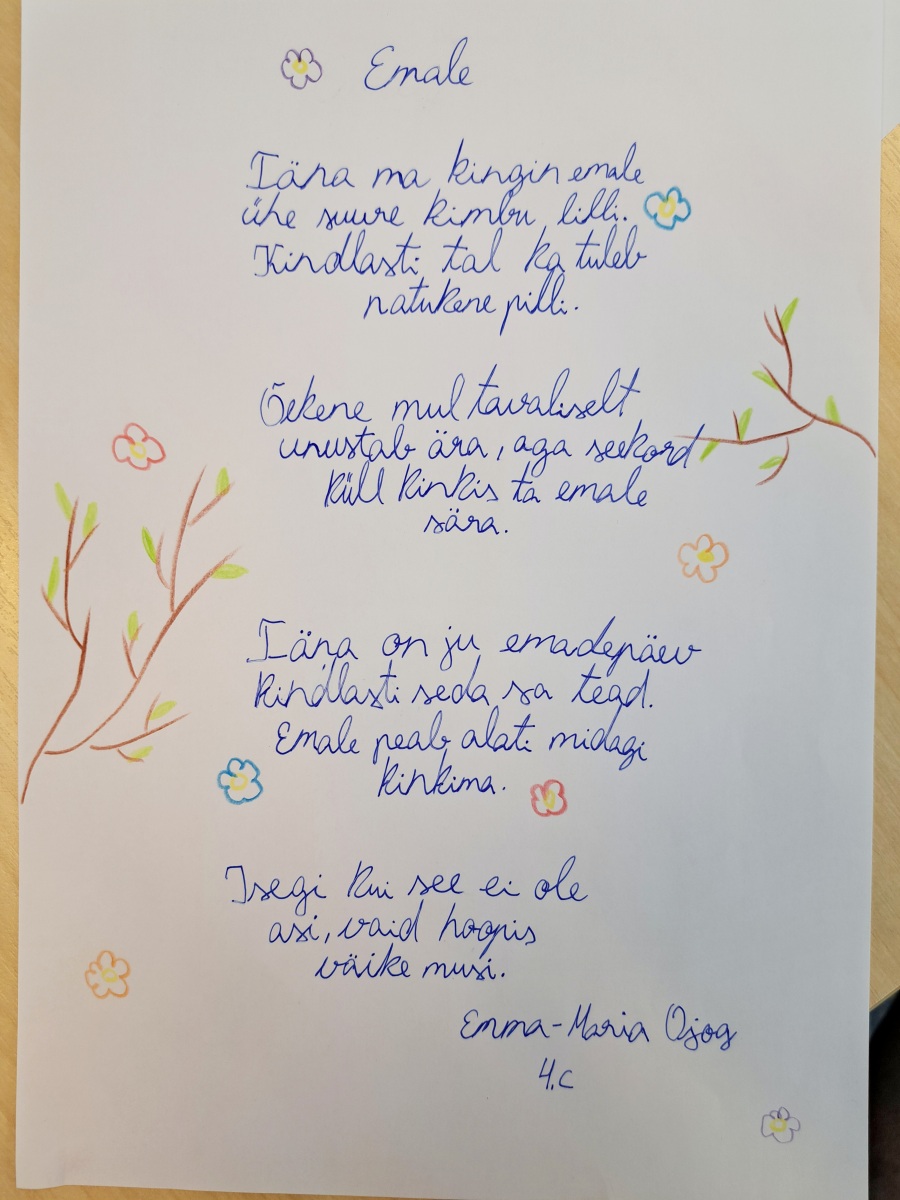 Emale
Täna ma kingin emale
ühe suure kimbu lilli.
Kindlasti tal ka tuleb
natukene pilli.
Õekene mul tavaliselt
unustab ära, aga seekord
küll kinkis ta emale
sära.
Täna on ju emadepäev
kindlasti seda sa tead.
Emale peab alati midagi
kinkima.
Isegi kui see ei ole
asi, vaid hoopis
väike musi.
Emma-Maria Ojog
4.c